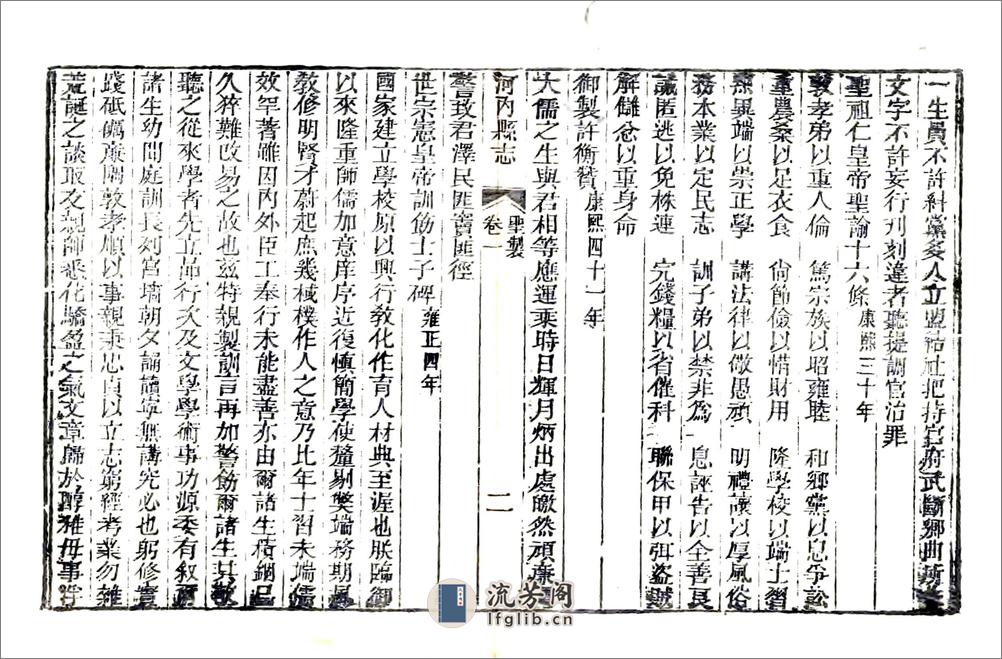 一生員不許糾黨多人立盟結社把持官府武斷鄉曲所作
文字不許妄行刊刻違者聽提調官治罪
聖祖仁皇帝聖諭十六條 康熙三十年
敦孝弟以重人倫 篤宗族以昭雍睦 和鄉黨以息爭訟
重農桑以足衣食 尚節儉以惜財用 隆學校以端士習
黜異端以崇正學 講法律以儆愚頑 明禮讓以厚風俗
務本業以定民志 訓子弟以禁非為 息誣告以全善良
誡匿逃以免株連 完錢糧以省催科 聯保甲以弭盜賊
解讎忿以重身命
御製許衡贊 康熙四十一年
大儒之生與君相等應運乘時日輝月炳出處皦然頑廉
河內縣志 卷一 聖製 二
致君澤民匪竇匪徑
世宗憲皇帝訓飭士子碑 雍正四年
國家建立學校原以興行教化作育人材典至渥也朕臨御
以來隆重師儒加意庠序近復慎簡學使釐剔弊端務期風
教修明賢才蔚起庶幾棫樸作人之意乃比年士習未端儒
效罕著雖因內外臣工奉行未能盡善亦由爾諸生積錮已
久猝難改易之故也茲特親製訓言再加警飭爾諸生其敬
聽之從來學者先立品行次及文學學術事功源委有敘爾
諸生幼聞庭訓長列宮墻朝夕誦讀寧無講究必也躬修實
踐砥礪廉隅敦孝順以事親秉忠貞以立志窮經考業勿雜
荒誕之談取友親師悉化驕盈之氣文章歸於醇雅毋事浮
流芳阁
lfglib.cn